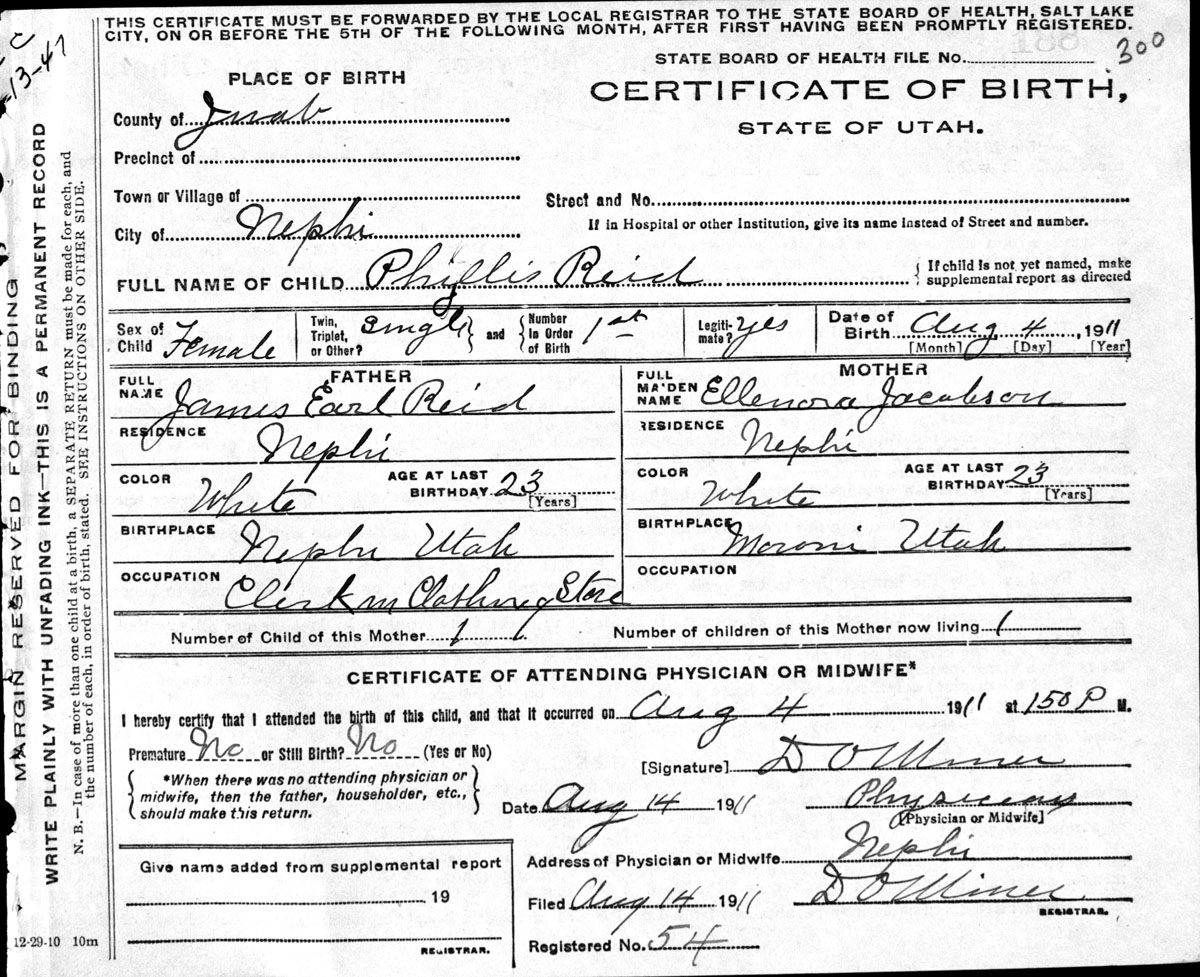 THIS CERTIFICATE MUST BE FORWARDED BY THE LOCAL REGISTRAR TO THE STATE BOARD OF HEALTH, SALT LAKE
CITY, ON OR BEFORE THE 5TH OF THE FOLLOWING MONTH, AFTER FIRST HAVING BEEN PROMPTLY REGISTERED.
13-47
300
STATE BOARD OF HEALTH FILE No.
PLACE OF BIRTH
CERTIFICATE OF BIRTH,
STATE OF UTAH.
County of Juab
Precinct of
Town or Village of
Street and No.
City of Nephi
If in Hospital or other Institution, give its name instead of Street and number.
FULL NAME OF CHILD Phyllis Reid
{ If child is not yet named, make
supplemental report as directed
Sex of Child Female
Twin, Triplet, or Other? Single } and { Number in Order of Birth 1st
Legiti-mate? yes
Date of Birth Aug 4, 1911
[Month] [Day] [Year]
FATHER
FULL NAME James Earl Reid
RESIDENCE Nephi
COLOR White AGE AT LAST BIRTHDAY 23 [Years]
BIRTHPLACE Nephi Utah
OCCUPATION Clerk in Clothing Store
MOTHER
FULL MAIDEN NAME Ellenora Jacobson
RESIDENCE Nephi
COLOR White AGE AT LAST BIRTHDAY 23 [Years]
BIRTHPLACE Moroni Utah
OCCUPATION
Number of Child of this Mother 1 Number of children of this Mother now living 1
CERTIFICATE OF ATTENDING PHYSICIAN OR MIDWIFE*
I hereby certify that I attended the birth of this child, and that it occurred on Aug 4 1911 at 150 P M.
Premature No or Still Birth? No (Yes or No)
[Signature] D O Miner
{ *When there was no attending physician or
midwife, then the father, householder, etc.,
should make this return. }
Date Aug 14 1911 Physician
[Physician or Midwife]
Address of Physician or Midwife Nephi
Filed Aug 14 1911 D O Miner
REGISTRAR.
Registered No. 54
Give name added from supplemental report
19
REGISTRAR.
12-29-10 10m
MARGIN RESERVED FOR BINDING
WRITE PLAINLY WITH UNFADING INK—THIS IS A PERMANENT RECORD
N. B.—In case of more than one child at a birth, a SEPARATE RETURN must be made for each, and
the number of each, in order of birth, stated. SEE INSTRUCTIONS ON OTHER SIDE.